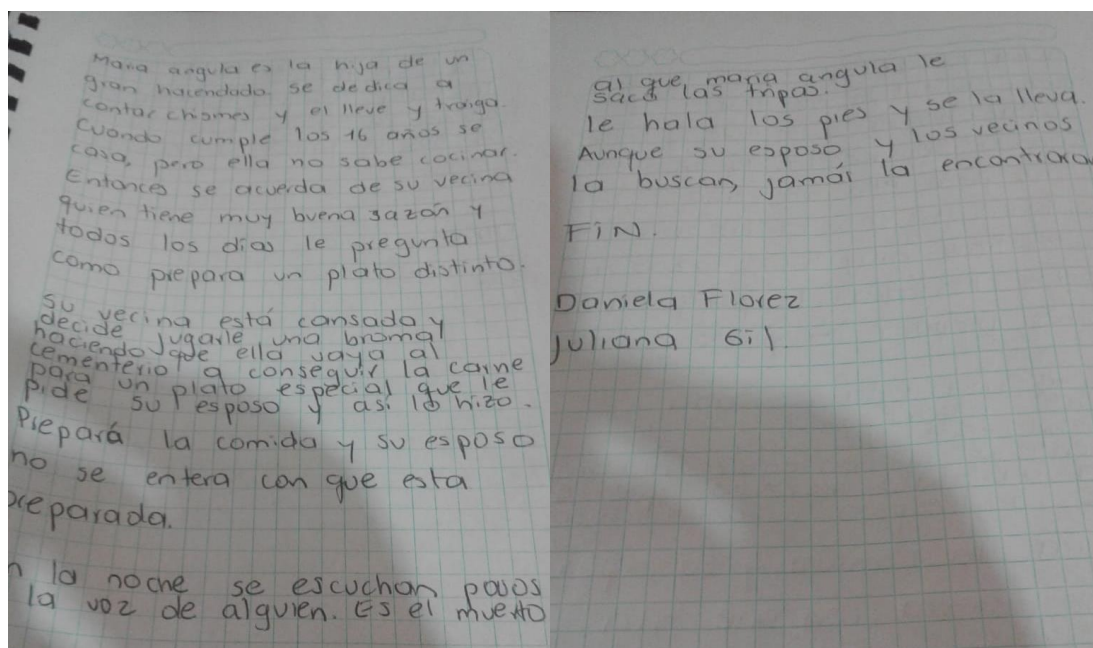 Maria angula es la hija de un
gran hacendado. se dedica a
contar chismes y el lleve y traiga.
Cuando cumple los 16 años se
casa, pero ella no sabe cocinar.
Entonces se acuerda de su vecina
quien tiene muy buena sazón y
todos los dias le pregunta
como prepara un plato distinto.
Su vecina está cansada y
decide jugarle una broma
haciendo que ella vaya al
cementerio a conseguir la carne
para un plato especial que le
pide su esposo y asi lo hizo.
Prepará la comida y su esposo
no se entera con que esta
preparada.
n la noche se escuchan pasos
la voz de alguien. Es el muerto
al que maria angula le
sacó las tripas.
le hala los pies y se la lleva.
Aunque su esposo y los vecinos
la buscan, jamás la encontrara
FiN.
Daniela Florez
Juliana Gil.